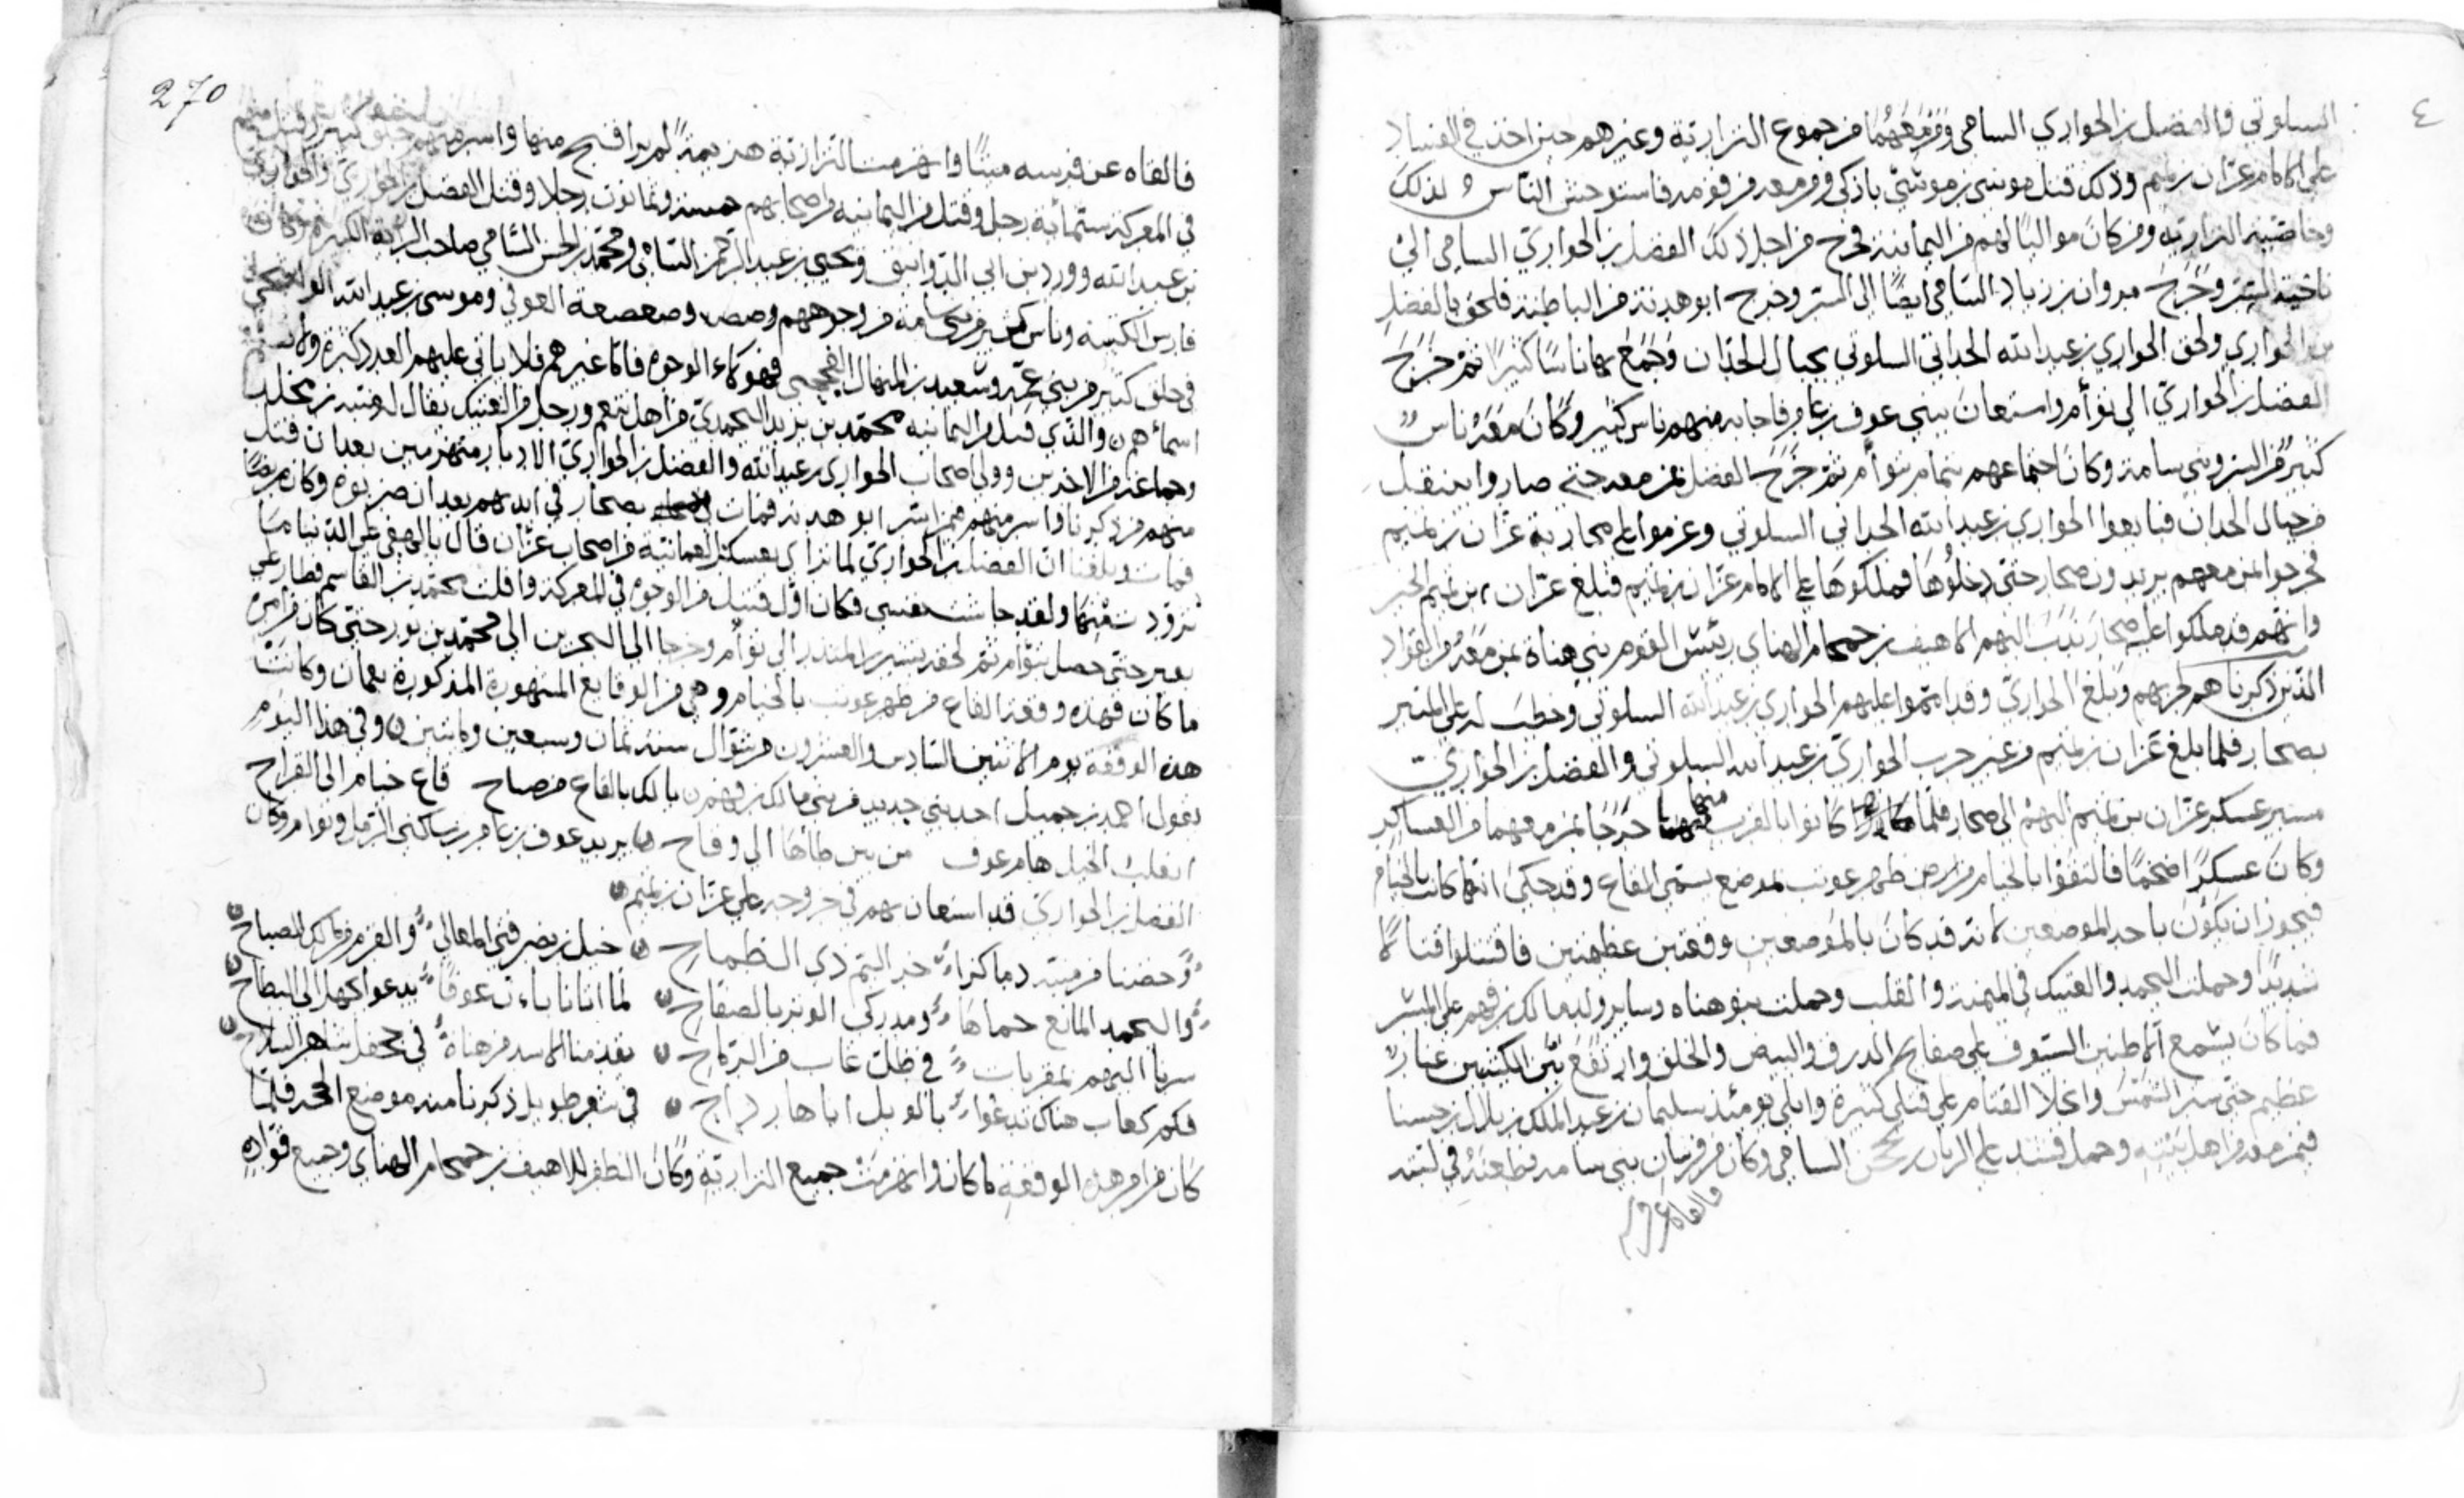 ٤
السلوتي والفضل بن الحواري السامي ومن معهما من جموع النزارية وغيرهم حين اخذ في الفساد
على الامام عزان بن تميم وذلك قتل موسى بن موسى بازكى ومن معه من قومه فاستوحش الناس لذلك
وخاصة النزارية ومن كان مواليا لهم من اليمانية فخرج من اجل ذلك الفضل بن الحواري السامي الى
ناحية الستر وخرج مروان بن زياد السامي ايضا الى الستر وخرج ابو هدنة من الباطنة فلحق بالفضل
بن الحواري ولحق الحواري بن عبد الله الحداني السلوتي بجبال الحدان وجمع بها ناسا كثيرا ثم خرج
الفضل بن الحواري الى تؤام واستعان ببني عوف بن عامر فاجابه منهم ناس كثير وكان معه ناس
كثير من السر وبني سامة وكان اجتماعهم تمام بتؤام ثم خرج الفضل بمن معه حتى صاروا بينقل
من جبال الحدان فبايعوا الحواري بن عبد الله الحداني السلوتي وعزموا على محاربة عزان بن تميم
فخرجوا بمن معهم يريدون صحار حتى دخلوها فملكوها على الامام عزان بن تميم فبلغ عزان بن تميم الخبر
وانهم قد ملكوا عليه صحار ندب اليهم الاهيف بن حمحام الهناي رئيس القوم بني هناة بمن معه من القواد
الذين ذكرناهم لحربهم وبلغ الحواري وقد امّوا عليهم الحواري بن عبد الله السلوتي وخطب له على المنبر
بصحار فلما بلغ عزان بن تميم من خبر حرب الحواري بن عبد الله السلوتي والفضل بن الحواري
مسير عسكر عزان بن تميم اليهم الى صحار فلما كانوا بالقرب منها خرجا بمن معهما من العساكر
وكان عسكرا ضخما فالتقوا بالخيام من ارض ظهر عوتب بموضع يسمى القاع وقد حكى انها كانت بالخيام
فيجوز ان يكون باحد الموضعين لانه قد كان بالموضعين وقعتين عظمتين فاقتتلوا قتالا
شديدا وحملت اليحمد والعتيك في الميمنة والقلب وحملت بنو هناه وساير ولد مالك بن فهم على الميسر
فما كان يسمع الا طنين السيوف على صفايح الدرق والبيض والحلق وارتفع بين الكتيبتين غبار
عظيم حتى ستر الشمس وانجلا القتام على قتلى كثيرة وابلى يومئذ سليمان بن عبد الملك بن بلال بن حسنا
فيمن معه من اهل بيته وحمل فشد على الريان بن محجن السامي وكان من فرسان بني سامه فطعنه في لبته
فالقاه عن فرسه
270
فالقاه عن فرسه ميتا وانهزمت النزارية هزيمة لم ير اقبح منها واسر منهم خلق كثير وقتل منهم
في المعركة ستمائة رجل وقتل من اليمانيه من اصحابهم خمسة وثمانون رجلا وقتل الفضل بن الحواري والحواري
بن عبد الله وورد بن ابي الدوانيق ويحيى بن عبد الرحمن السامي ومحمد بن الحسن السامي صاحب الراية الكبيرة وكان
فارس الكتيبه وناس كثير من بني سامه من وجوههم وصعصعة العوفي وموسى بن عبد الله
في خلق كثير من بني عمه وسعيد بن المنهال فهؤلاء الوجوه فاما غيرهم فلا ياتي عليهم العدد كثرة
اسمائهم والذي قتل من اليمانيه محمد بن يزيد اليحمدي من اهل تنعم ورجل من العتيك يقال له منبه بن مخلد
وجماعة من الاخرين وولى اصحاب الحواري بن عبد الله والفضل بن الحواري الادبار منهزمين بعد ان قتل
منهم من ذكرنا واسر منهم ممن اسر ابو هدنه فمات بصحار في ايديهم بعد ان ضربوه وكان مريضا
فمات وبلغنا ان الفضل بن الحواري لما تراى بعسكر العمانيه من اصحاب عزان قال يا لهفي على الدنيا ما
تزود منها ولقد جاشت نفسي فكان اول قتيل من الوجوه في المعركة وافلت محمد بن القاسم فطار على
بعير حتى حصل بتؤام ثم لحقه بشير بن المنذر الى تؤام وخرجا الى البحرين الى محمد بن نور حتى كان من امره
ما كان فهذه وقعة القاع من ظهر عوتب بالخيام وهي من الوقايع المشهورة المذكورة بعمان وكانت
هذه الوقعة يوم الاثنين السادس والعشرون من شوال سنة ثمان وسبعين ومائتين وفي هذا اليوم
يقول احمد بن جميل احد بني جديد من بني مالك بن فهم يا لك بالقاع من صباح قاع خيام الى القراح
انقلب الخيل هام عوف من بين طاها الى وقاح يريد عوف بن عامر بن ساكني الرمل وتوام وكان
الفضل بن الحواري قد استعان بهم في خروجه على عزان بن تميم
خيل بن نصر فتى المعالي والغر من مالك الصباح
لما اتانا بان عوفا يدعوا كهلا الى البطاح واليحمد المانع حماها ومدركي الوتر بالصفاح
تقدمنا الاسد من هناة في جحفل شاهر السلاح سرنا اليهم بمقربات في ظل غاب من الرماح
فكم كعاب هناك تدعوا بالويل اباها رداح في شعر طويل ذكرنا منه موضع الحجه فلما
كان من امر هذه الوقعه ما كان وانهزمت جميع النزارية وكان الظفر للاهيف بن حمحام الهناي وجميع قواده